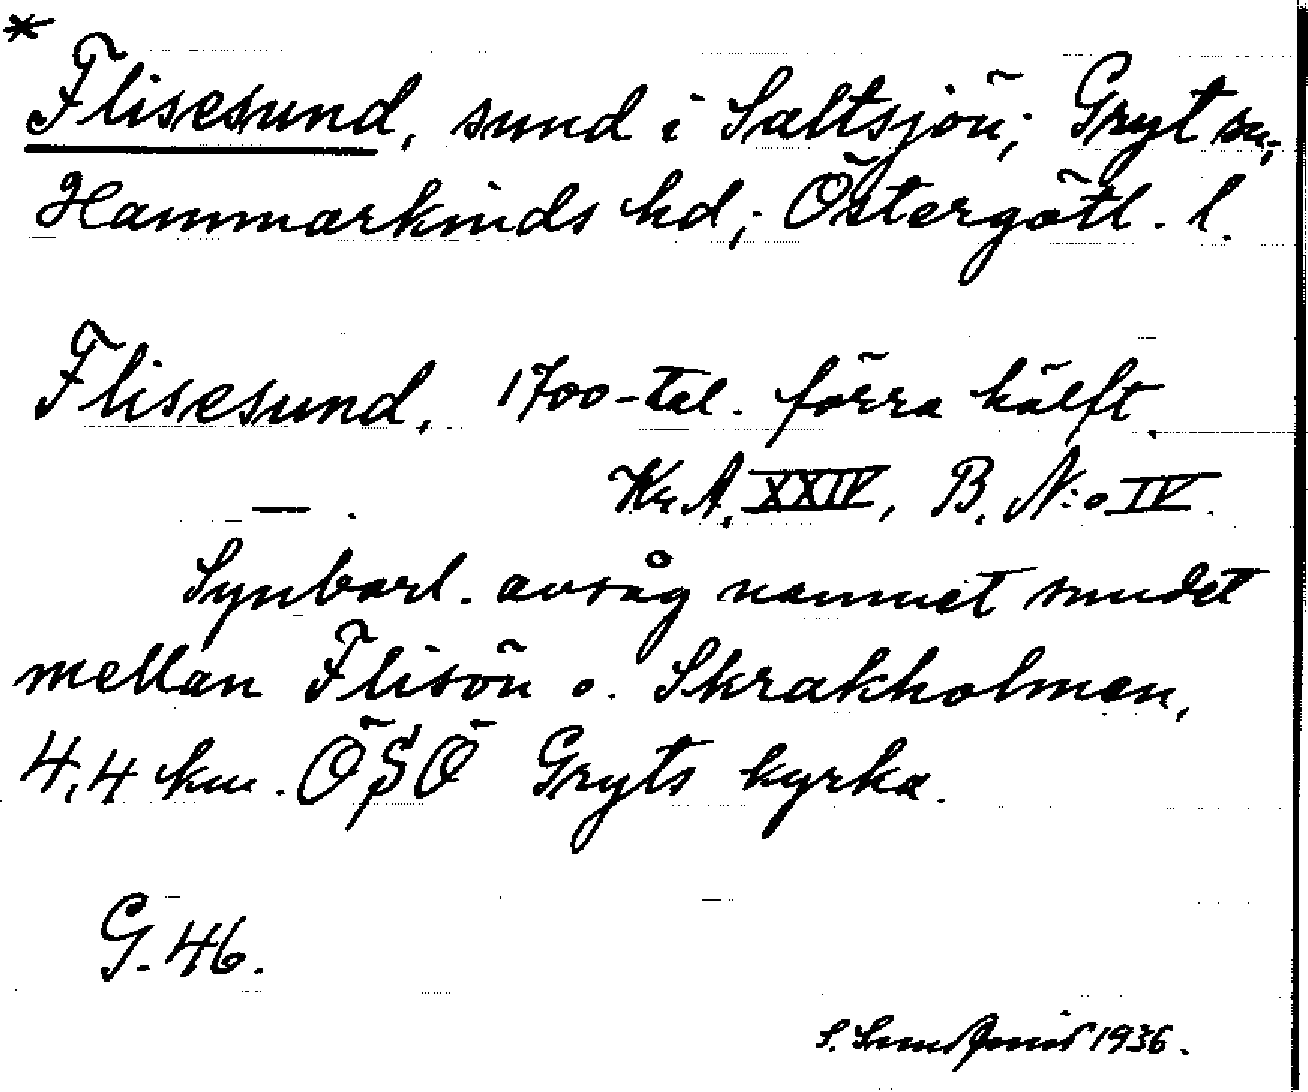 *
Flisesund, sund i Saltsjön; Gryt sn,
Hammarkinds hd; Östergötl. l.
Flisesund. 1700-tal. förra hälft.
— . Kr. A. XXIV, B. N:o IV.
Synbarl. avsåg namnet sundet
mellan Flisön o. Skrakholmen,
4,4 km. ÖSÖ Gryts kyrka.
G. 46.
S. 1936.